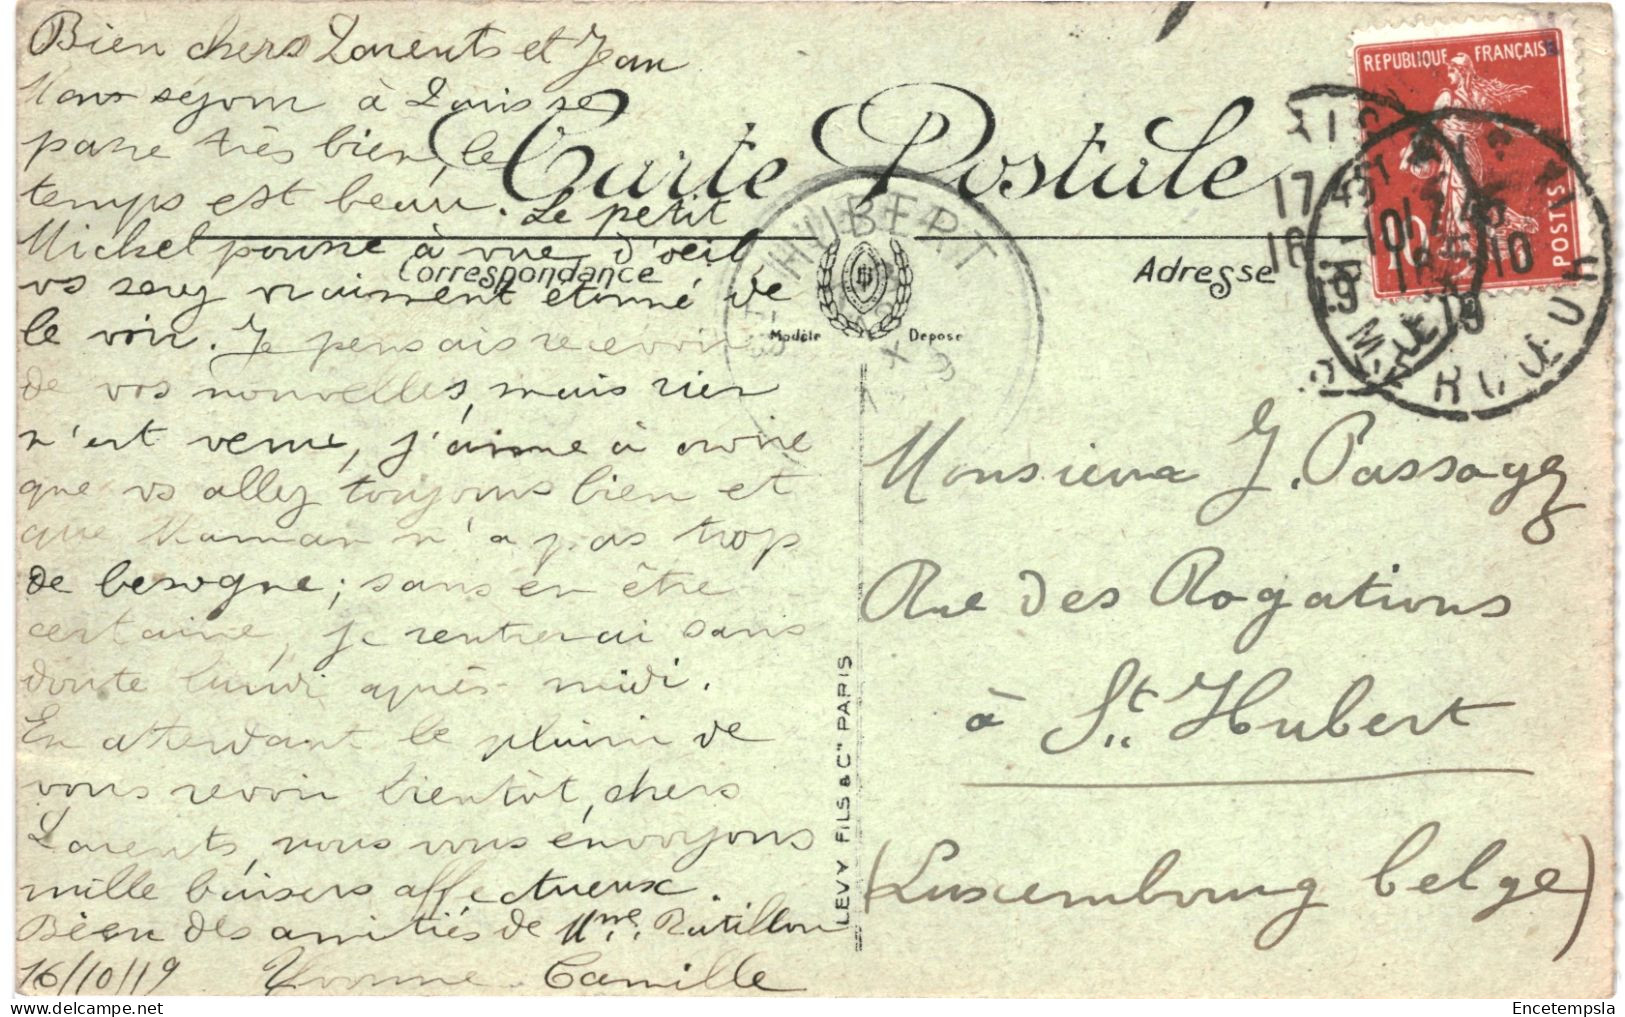 Bien chers Parents et Jean
Mon séjour à Paris se
passe très bien, le
temps est beau. Le petit
Michel pousse à vue d'oeil
vs serez vraiment étonné de
le voir. Je pensais recevoir
de vos nouvelles, mais rien
n'est venu, j'aime à croire
que vs allez toujours bien et
que Maman n'a pas trop
de besogne; sans en être
certaine, je rentrerai sans
doute lundi après-midi.
En attendant le plaisir de
vous revoir bientôt, chers
Parents, nous vous envoyons
mille baisers affectueux.
Bien des amitiés de Mme.
16/10/19 Yvonne Camille
Carte Postale
Correspondance
Adresse
Modèle Déposé
HUBERT
REPUBLIQUE FRANÇAISE
POSTES
10
17 45
16 10
19
LEVY FILS & Cie PARIS
Monsieur J. Passagez
Rue des Rogations
à St. Hubert
(Luxembourg belge)
Encetempsla